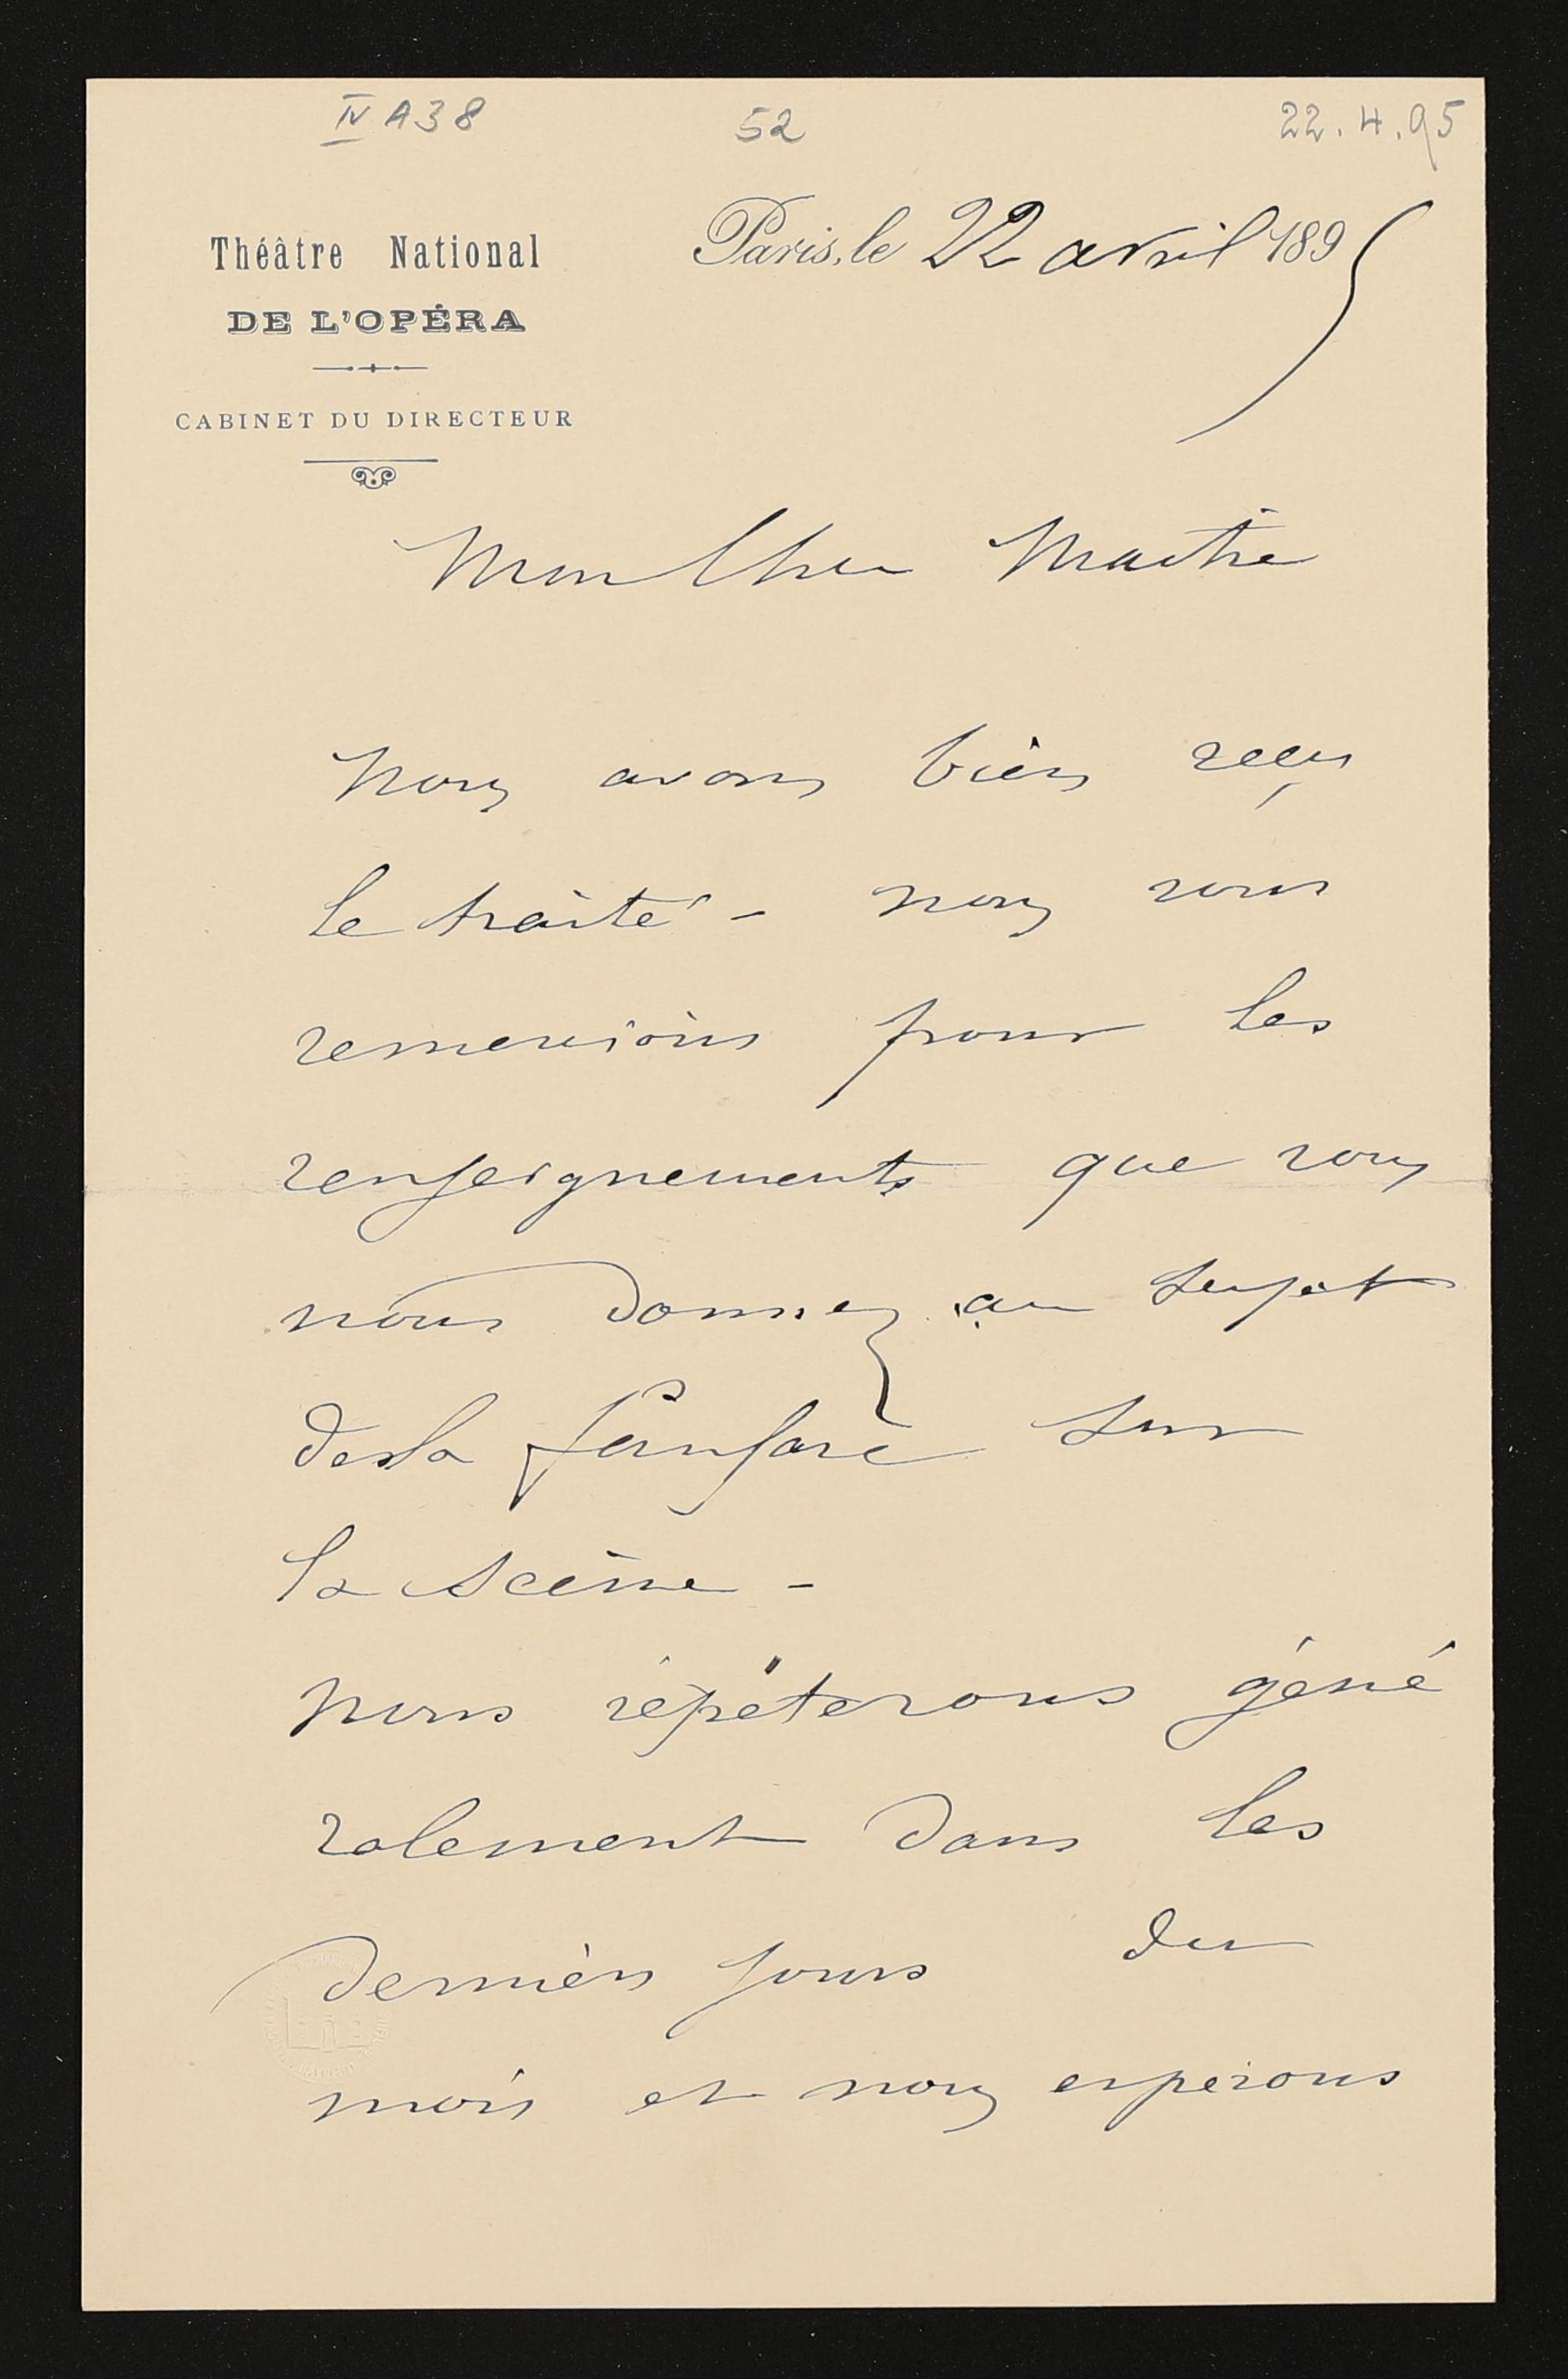 IV A38
52
22.4.95
Théâtre National
DE L'OPÉRA
CABINET DU DIRECTEUR
Paris, le 22 avril 1895
Mon Cher Maitre
Nous avons bien reçu
le traité - nous vous
remercions pour les
renseignements que vous
nous donnez au sujet
de la fanfare sur
la scène -
Nous répéterons géné
ralement dans les
derniers jours du
mois et nous esperons